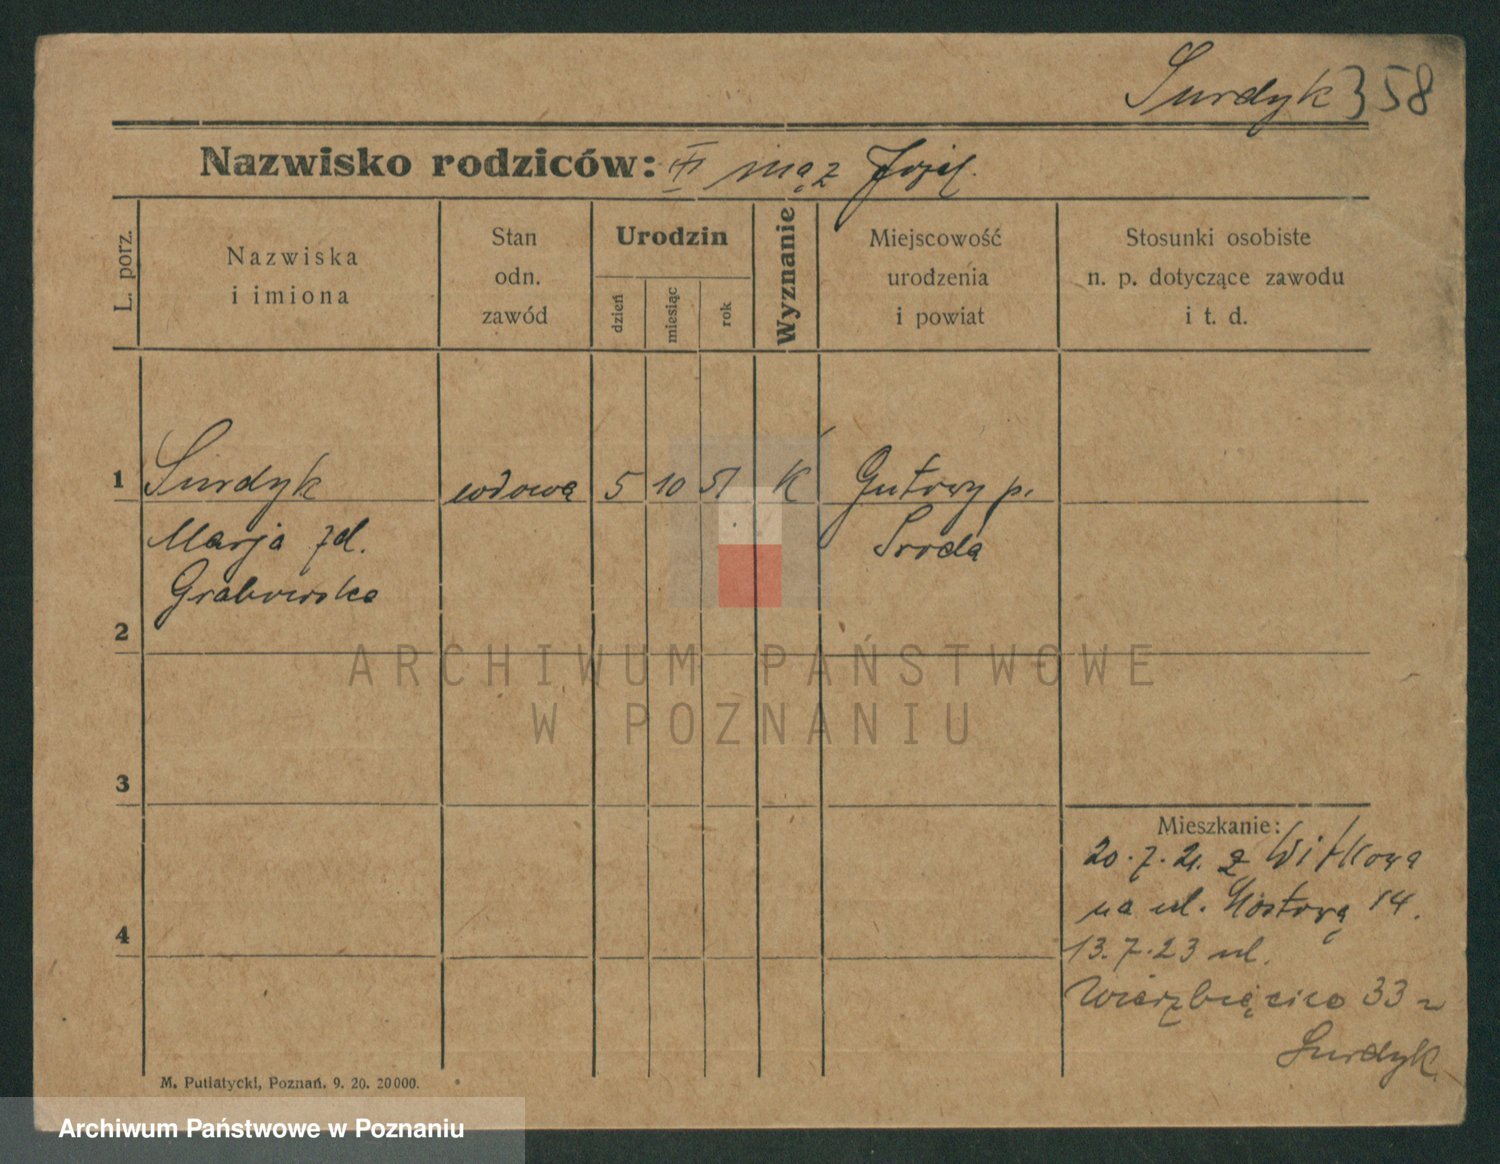 Surdyk 358
Nazwisko rodziców: mąż Józef.
L. porz.
Nazwiska
i imiona
Stan
odn.
zawód
Urodzin
dzień
miesiąc
rok
Wyznanie
Miejscowość
urodzenia
i powiat
Stosunki osobiste
n. p. dotyczące zawodu
i t. d.
1 Surdyk wdowa 5 10 51 K Gutowy p.
Marja zd. Środa
Grabowska
2
3
4
Mieszkanie:
20.7.21. z Witkowa
na ul. Mostową 14.
13.7.23 ul.
Wierzbięcice 33
Surdyk
M. Putiatycki, Poznań. 9. 20. 20000.
ARCHIWUM PAŃSTWOWE
W POZNANIU
Archiwum Państwowe w Poznaniu